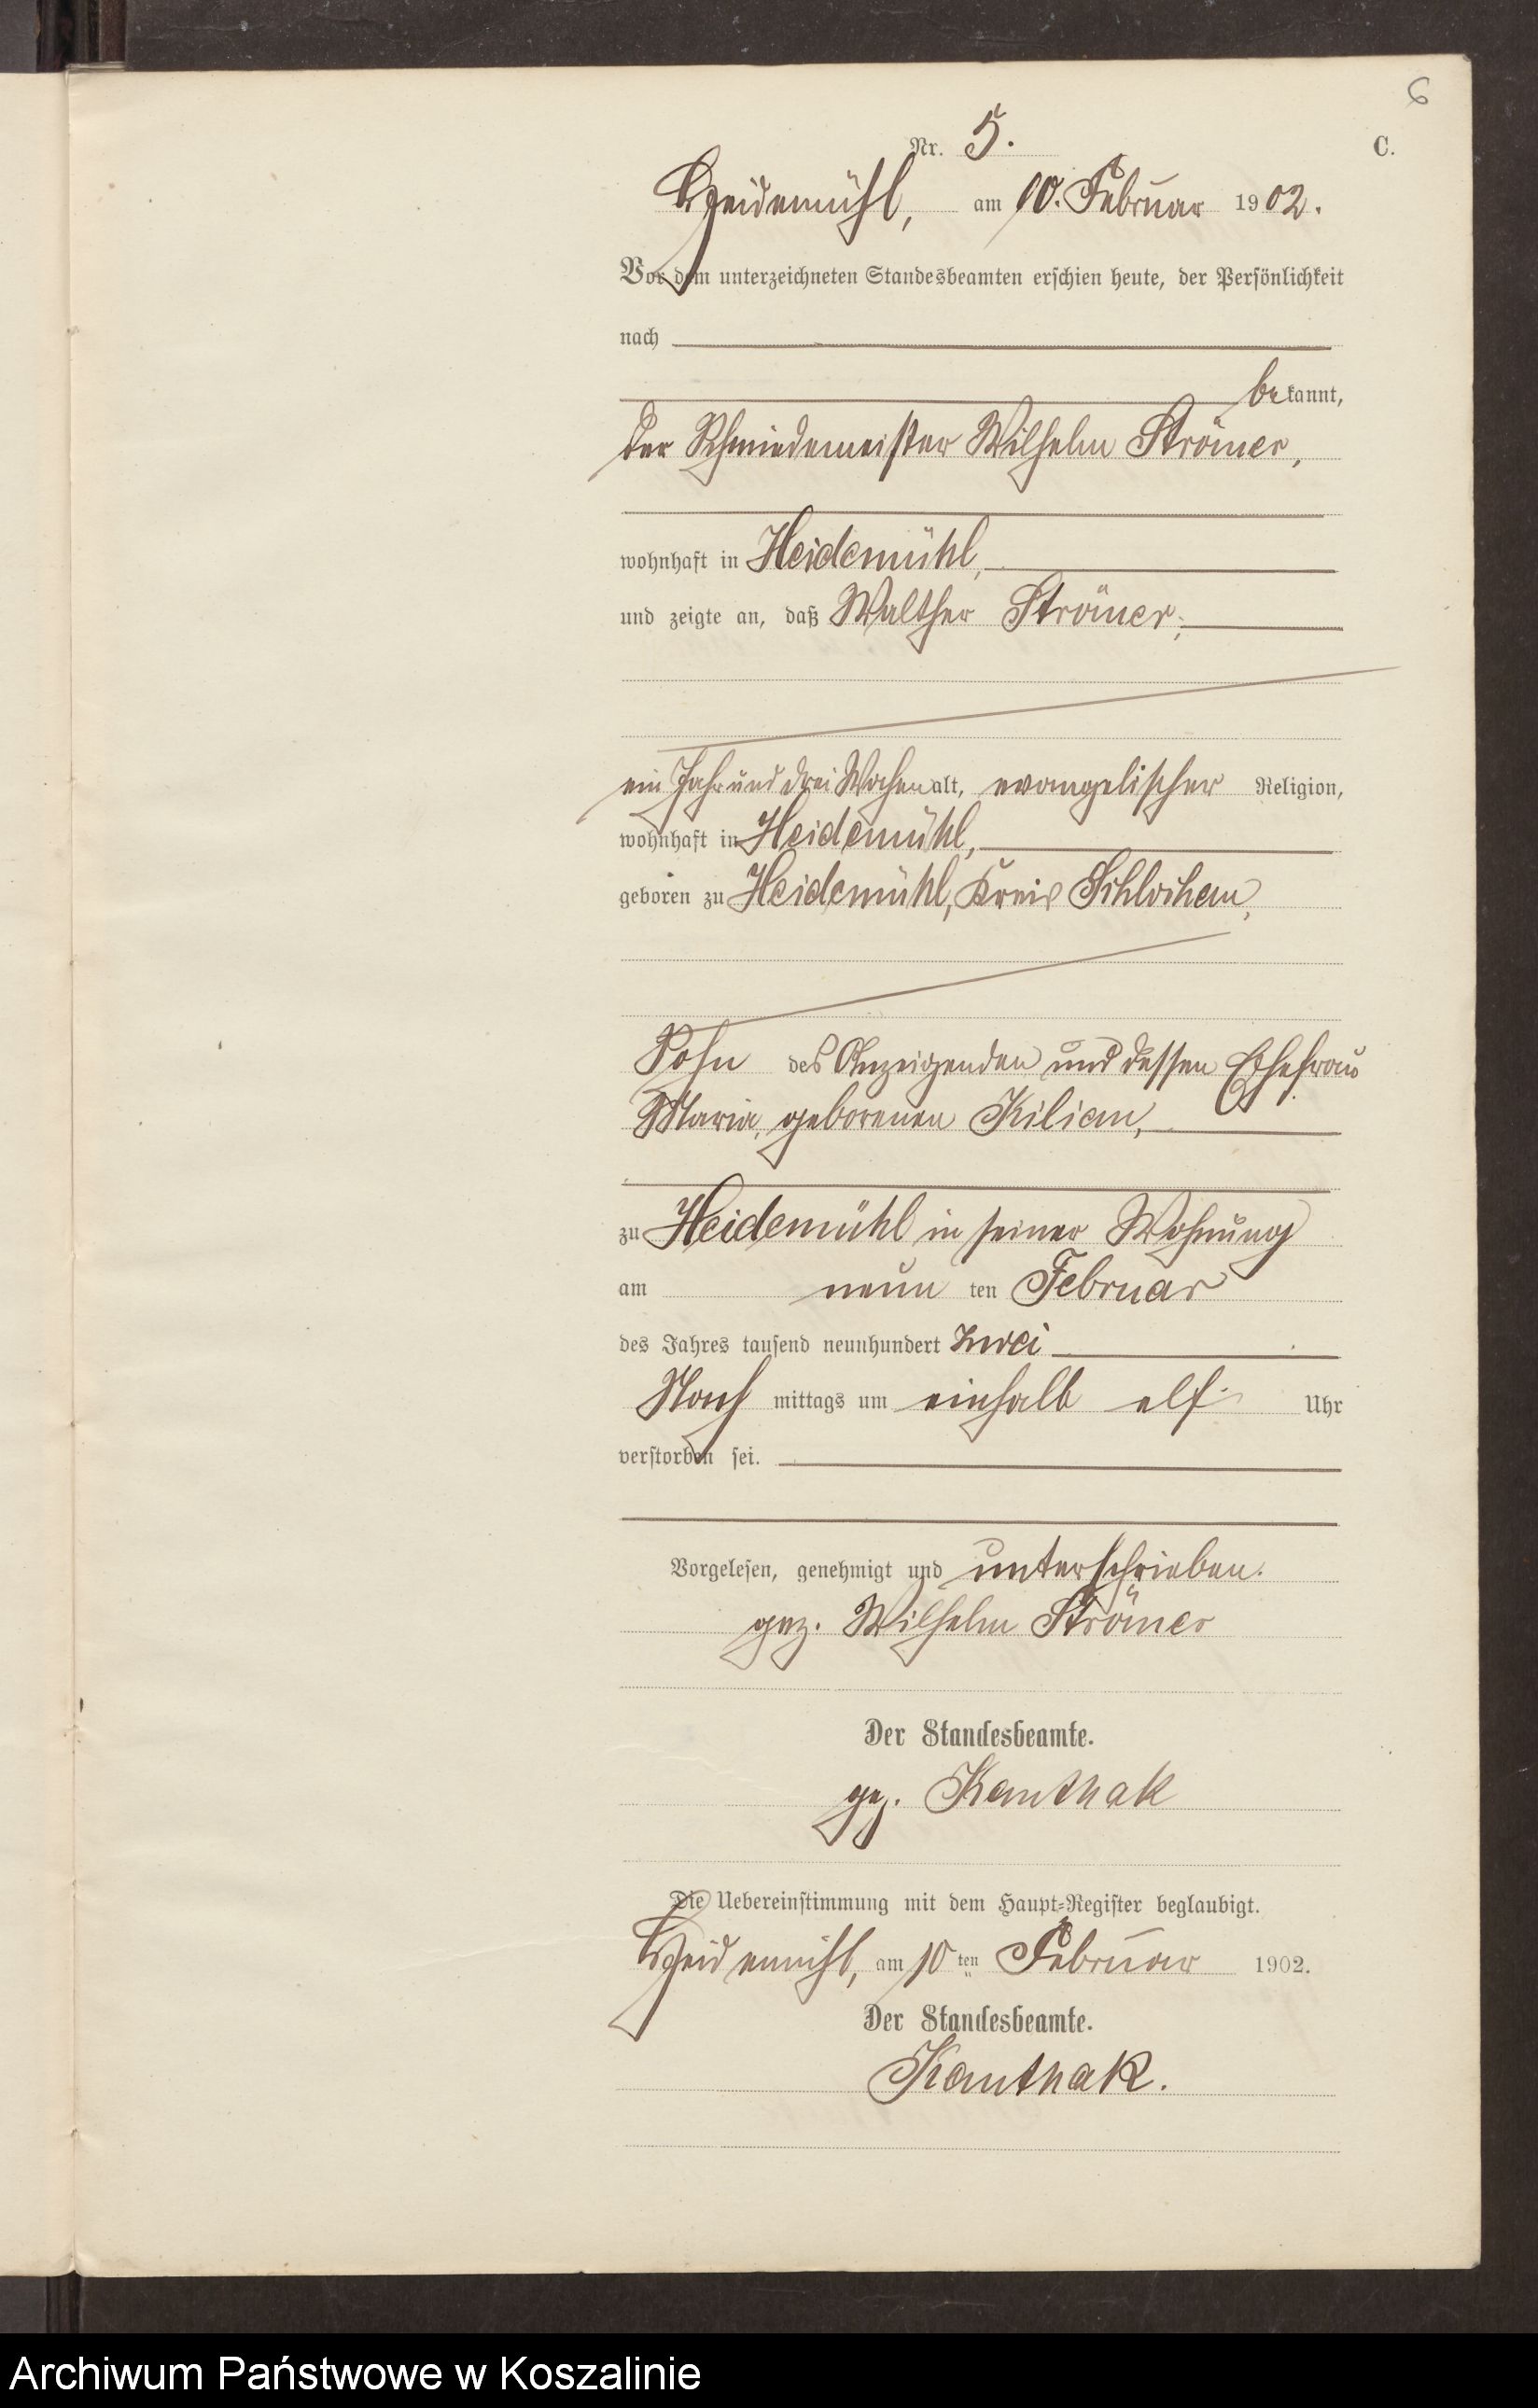 6
Nr. 5.
C.
Heidemühl, am 10. Februar 1902.
Vor dem unterzeichneten Standesbeamten erschien heute, der Persönlichkeit
nach
bekannt,
der Schmiedemeister Wilhelm Strömer,
wohnhaft in Heidemühl,
und zeigte an, daß Walther Strömer,
ein Jahr und drei Wochen alt, evangelischer Religion,
wohnhaft in Heidemühl,
geboren zu Heidemühl, Kreis Schlochau,
Sohn des Anzeigenden und dessen Ehefrau
Maria, geborenen Kilian,
zu Heidemühl in seiner Wohnung
am neun ten Februar
des Jahres tausend neunhundert zwei
Nach mittags um einhalb elf Uhr
verstorben sei.
Vorgelesen, genehmigt und unterschrieben.
gez. Wilhelm Strömer
Der Standesbeamte.
gez. Kanthak
Die Uebereinstimmung mit dem Haupt-Register beglaubigt.
Heidemühl, am 10ten Februar 1902.
Der Standesbeamte.
Kanthak.
Archiwum Państwowe w Koszalinie